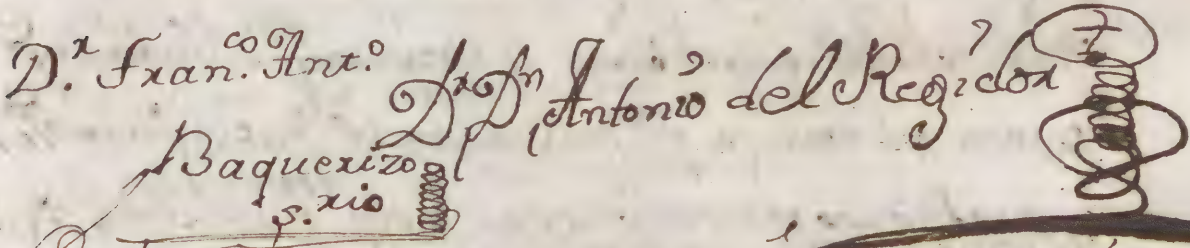 D.r Fran.co Ant.o
Baquerizo
s.rio
Dr Dn Antonio del Regidor